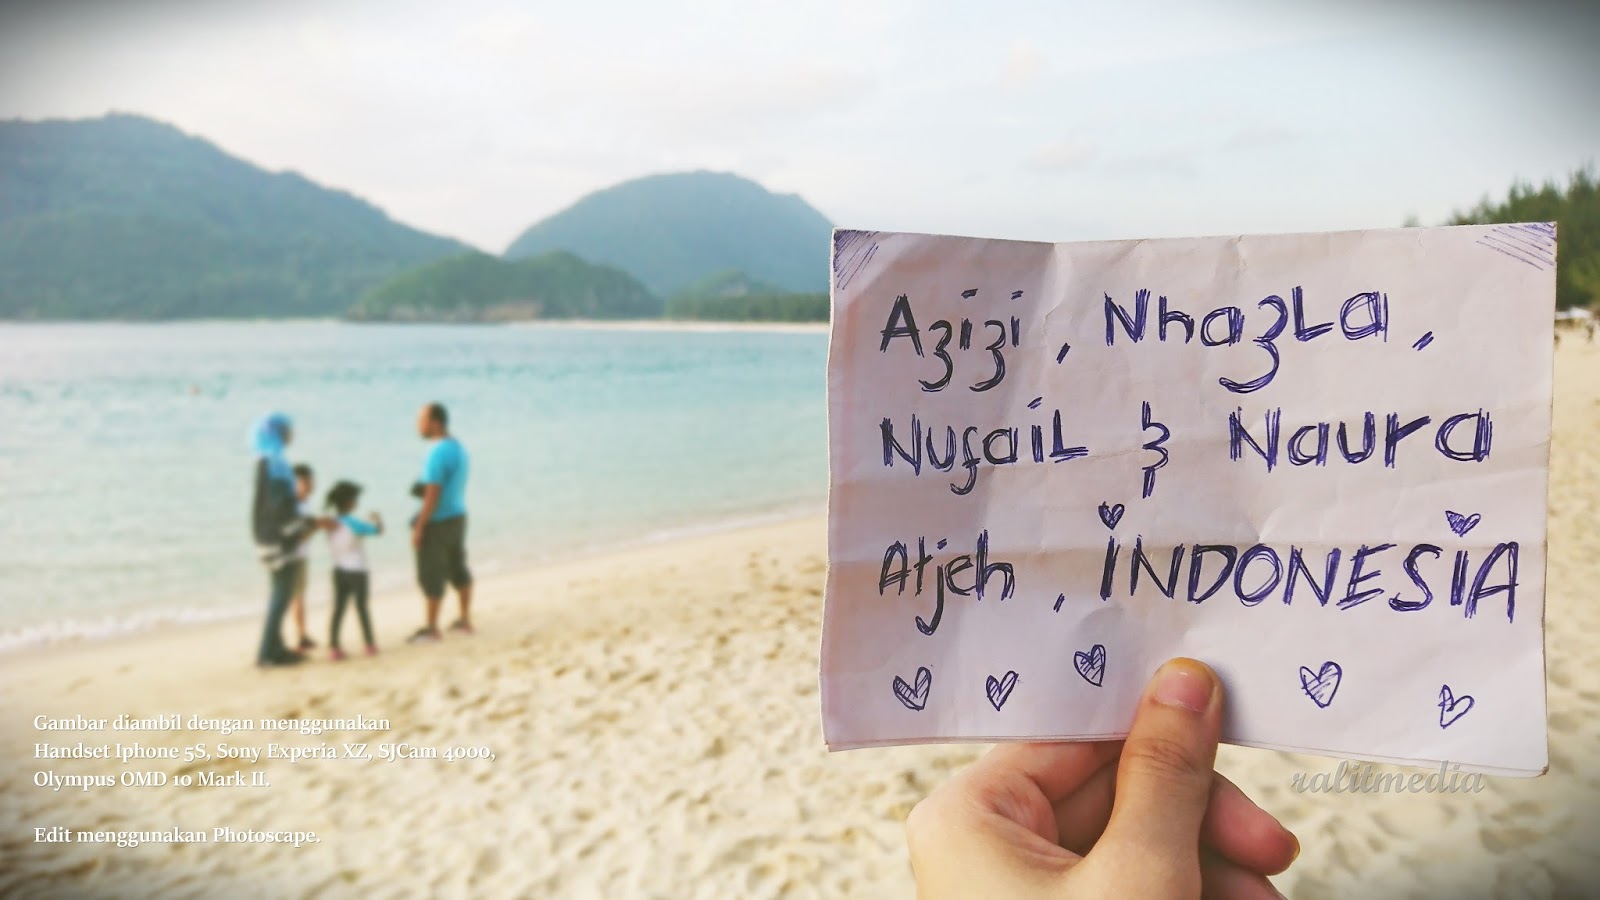 Azizi, NhazLa,
NufaiL & Naura
Atjeh, iNDONESiA
Gambar diambil dengan menggunakan
Handset Iphone 5S, Sony Experia XZ, SJCam 4000,
Olympus OMD 10 Mark II.
Edit menggunakan Photoscape.
ralitmedia